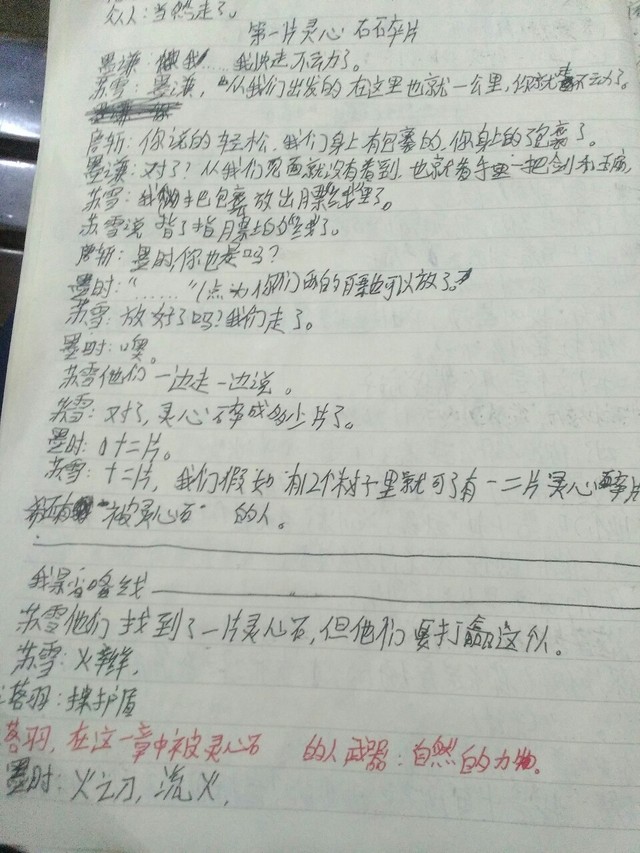 众人：当然走了。
第一片灵心石碎片
墨谦：慢我……我快走不动了。
苏雪：墨谦，"从我们出发的在这里也就一公里，你就走不动了。
唐斩：你说的轻松，我们身上有包裹的，你身上的包裹了。
墨谦：对了？从我们见面就没有看到，也就着手里一把剑和玉
苏雪：我把包裹放出月票"线"里了。
苏雪说 指了指月票上的"线"了。
唐斩：墨时你也是吗？
墨时："……"（点为你们的月票也可以放了。
苏雪：放好了吗？我们走了。
墨时：噢。
苏雪他们一边走一边说。
苏雪：对了，灵心石碎成多少片了。
墨时：十二片。
苏雪：十二片，我们假如有12个村子里就可了有一二片灵心碎片
"被灵心石" 的人。
我是省略线
苏雪他们找到了一片灵心石，但他们要打赢这个人。
苏雪：火
落羽：保护盾
落羽，在这一章中被灵心石 的人武器：自然的力物。
墨时：火之刀，流火，